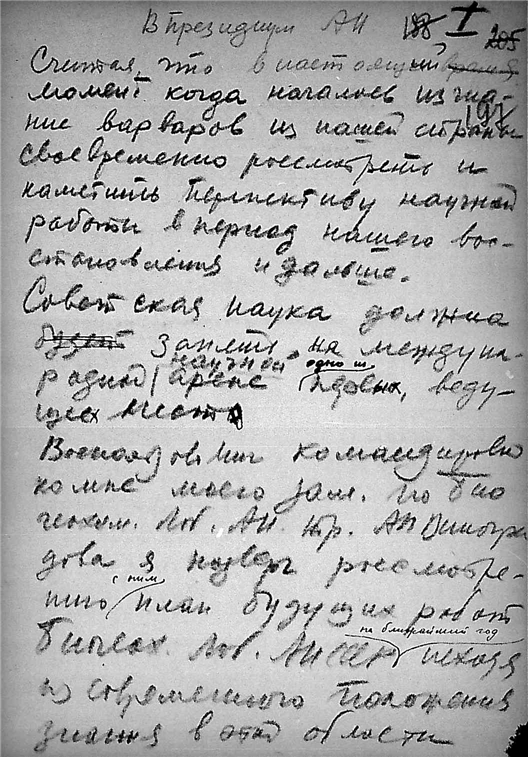 В Президиум АН 188 I 205
Считая, что в настоящий время
момент когда началось изгна- 197
ние варваров из нашей страны
своевременно рассмотреть и
наметить перспективу научной
работы в период нашего вос-
становления и дальше.
Советская наука должна
будет занять на междуна-
научной одно из
родной арене первых, веду-
щих мест
командировкой
ко мне моего зам. по Био
геохим. Лаб. АН пр. АП Виногра
дова я подверг рассмотре-
с ним
нию план будущих работ
на ближайший год
Биогеох. Лаб. АН ССС исходя
из современного положения
знания в этой области